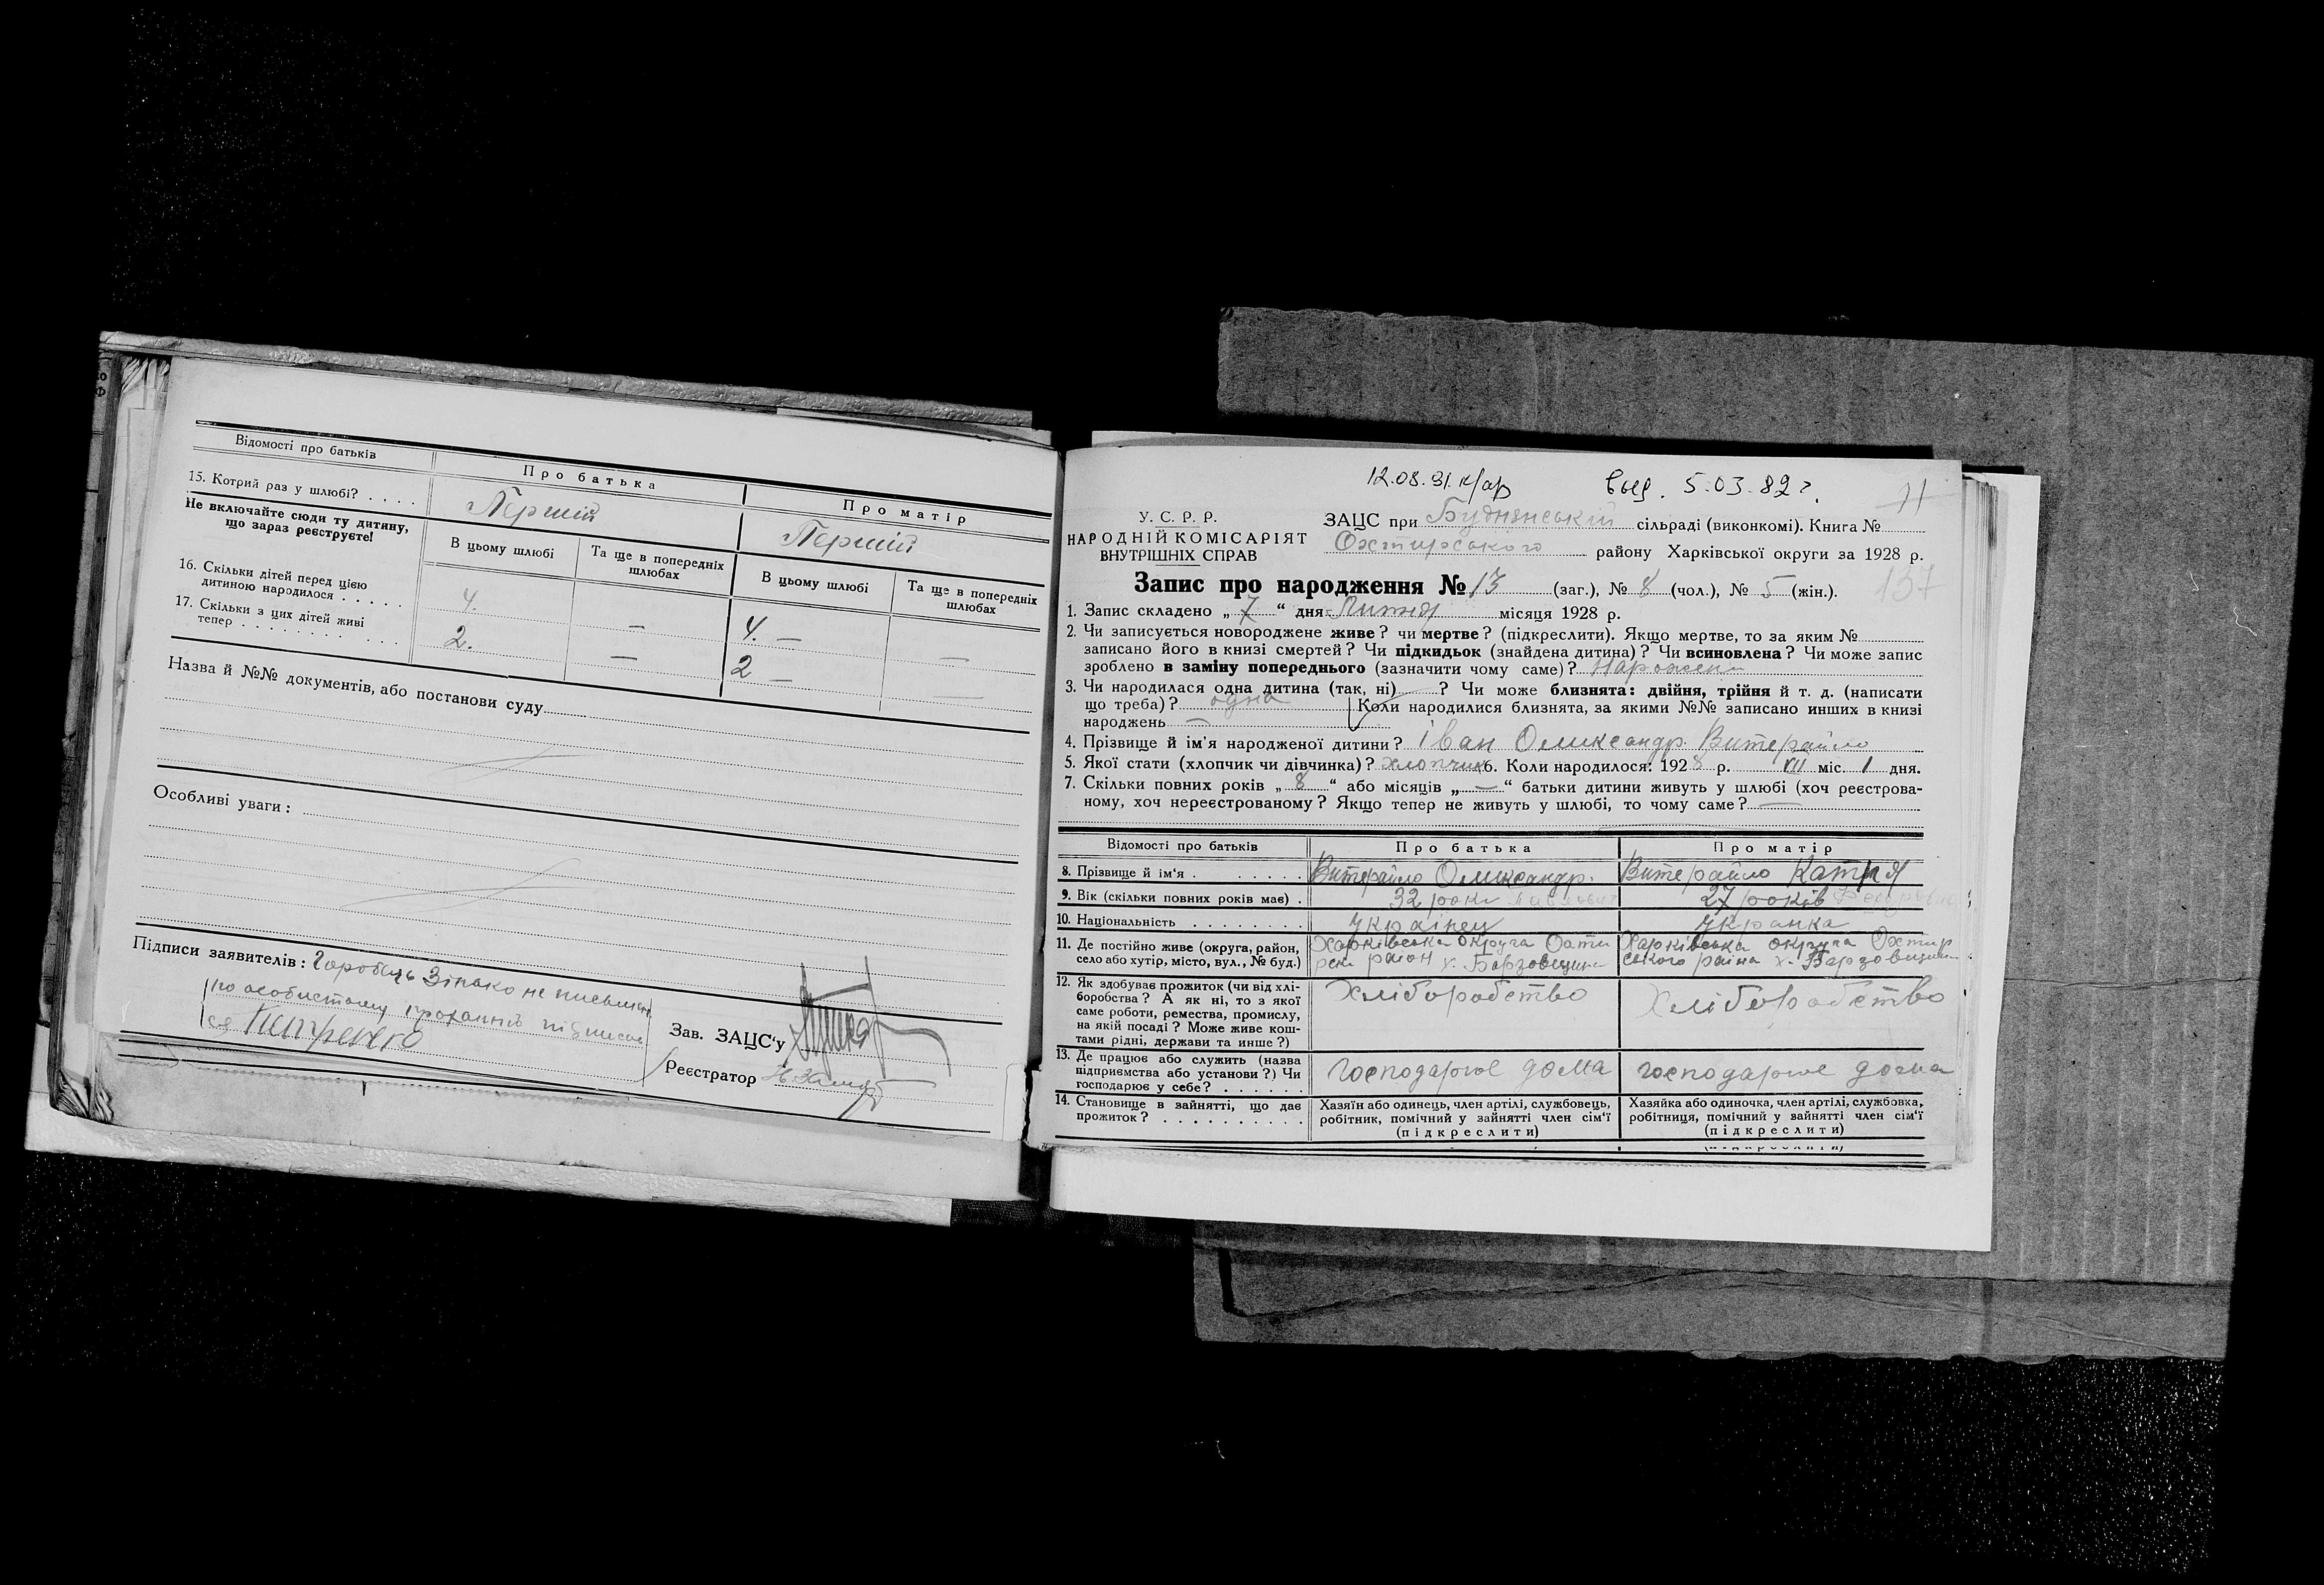 Відомості про батьків
Про батька
Про матір
15. Котрий раз у шлюбі? . . . .
Перший
Перший
Не включайте сюди ту дитину,
що зараз реєструєте!
В цьому шлюбі
Та ще в попередніх
шлюбах
В цьому шлюбі
Та ще в попередніх
шлюбах
16. Скільки дітей перед цією
дитиною народилося . . . . .
4.
—
4. —
—
17. Скільки з цих дітей живі
тепер . . . . . . . . . . .
2.
—
2 —
—
Назва й №№ документів, або постанови суду
Особливі уваги:
Підписи заявителів: Горобець Зінько не письмен
по особистому проханню підписав
ся Петренко
Зав. ЗАЦС'у
Реєстратор
12.08.81. к/ар
выд. 5.03.82 г.
71
У. С. Р. Р.
НАРОДНІЙ КОМІСАРІЯТ
ВНУТРІШНІХ СПРАВ
ЗАЦС при Буднянській сільраді (виконкомі). Книга №
Охтирського району Харківської округи за 1928 р.
157
Запис про народження № 13 (заг.), № 8 (чол.), № 5 (жін.).
1. Запис складено „ 7 “ дня Липня місяця 1928 р.
2. Чи записується новороджене живе? чи мертве? (підкреслити). Якщо мертве, то за яким №
записано його в книзі смертей? Чи підкидьок (знайдена дитина)? Чи всиновлена? Чи може запис
зроблено в заміну попереднього (зазначити чому саме)? Нарожени
3. Чи народилася одна дитина (так, ні) ? Чи може близнята: двійня, трійня й т. д. (написати
що треба)? одна Коли народилися близнята, за якими №№ записано инших в книзі
народжень —
4. Прізвище й ім'я народженої дитини? Іван Олександр. Витерайло
5. Якої стати (хлопчик чи дівчинка)? хлопчик 6. Коли народилося: 1928 р. VII міс. 1 дня.
7. Скільки повних років „ 8 “ або місяців „ — “ батьки дитини живуть у шлюбі (хоч реєстрова-
ному, хоч нереєстрованому? Якщо тепер не живуть у шлюбі, то чому саме? —
Відомості про батьків
Про батька
Про матір
8. Прізвище й ім'я . . . . . .
Витерайло Олександр.
Витерайло Катря
9. Вік (скільки повних років має) .
32 роки
27 років
10. Національність . . . . . . . .
Українец
Укранка
11. Де постійно живе (округа, район,
село або хутір, місто, вул., № буд.)
Харківська округа Охти
рськ район х. Борзовщина
Харківська округа Охтир
ського раіна х. Борзовщини
12. Як здобуває прожиток (чи від хлі-
боробства? А як ні, то з якої
саме роботи, ремества, промислу,
на якій посаді? Може живе кош-
тами рідні, держави та инше?)
Хліборобство
Хліборобство
13. Де працює або служить (назва
підприємства або установи?) Чи
господарює у себе? . . . . . .
господарює дома
господарює дома
14. Становище в зайнятті, що дає
прожиток? . . . . . . . . . .
Хазяїн або одинець, член артілі, службовець,
робітник, помічний у зайнятті член сім'ї
(підкреслити)
Хазяйка або одиночка, член артілі, службовка,
робітниця, помічний у зайнятті член сім'ї
(підкреслити)